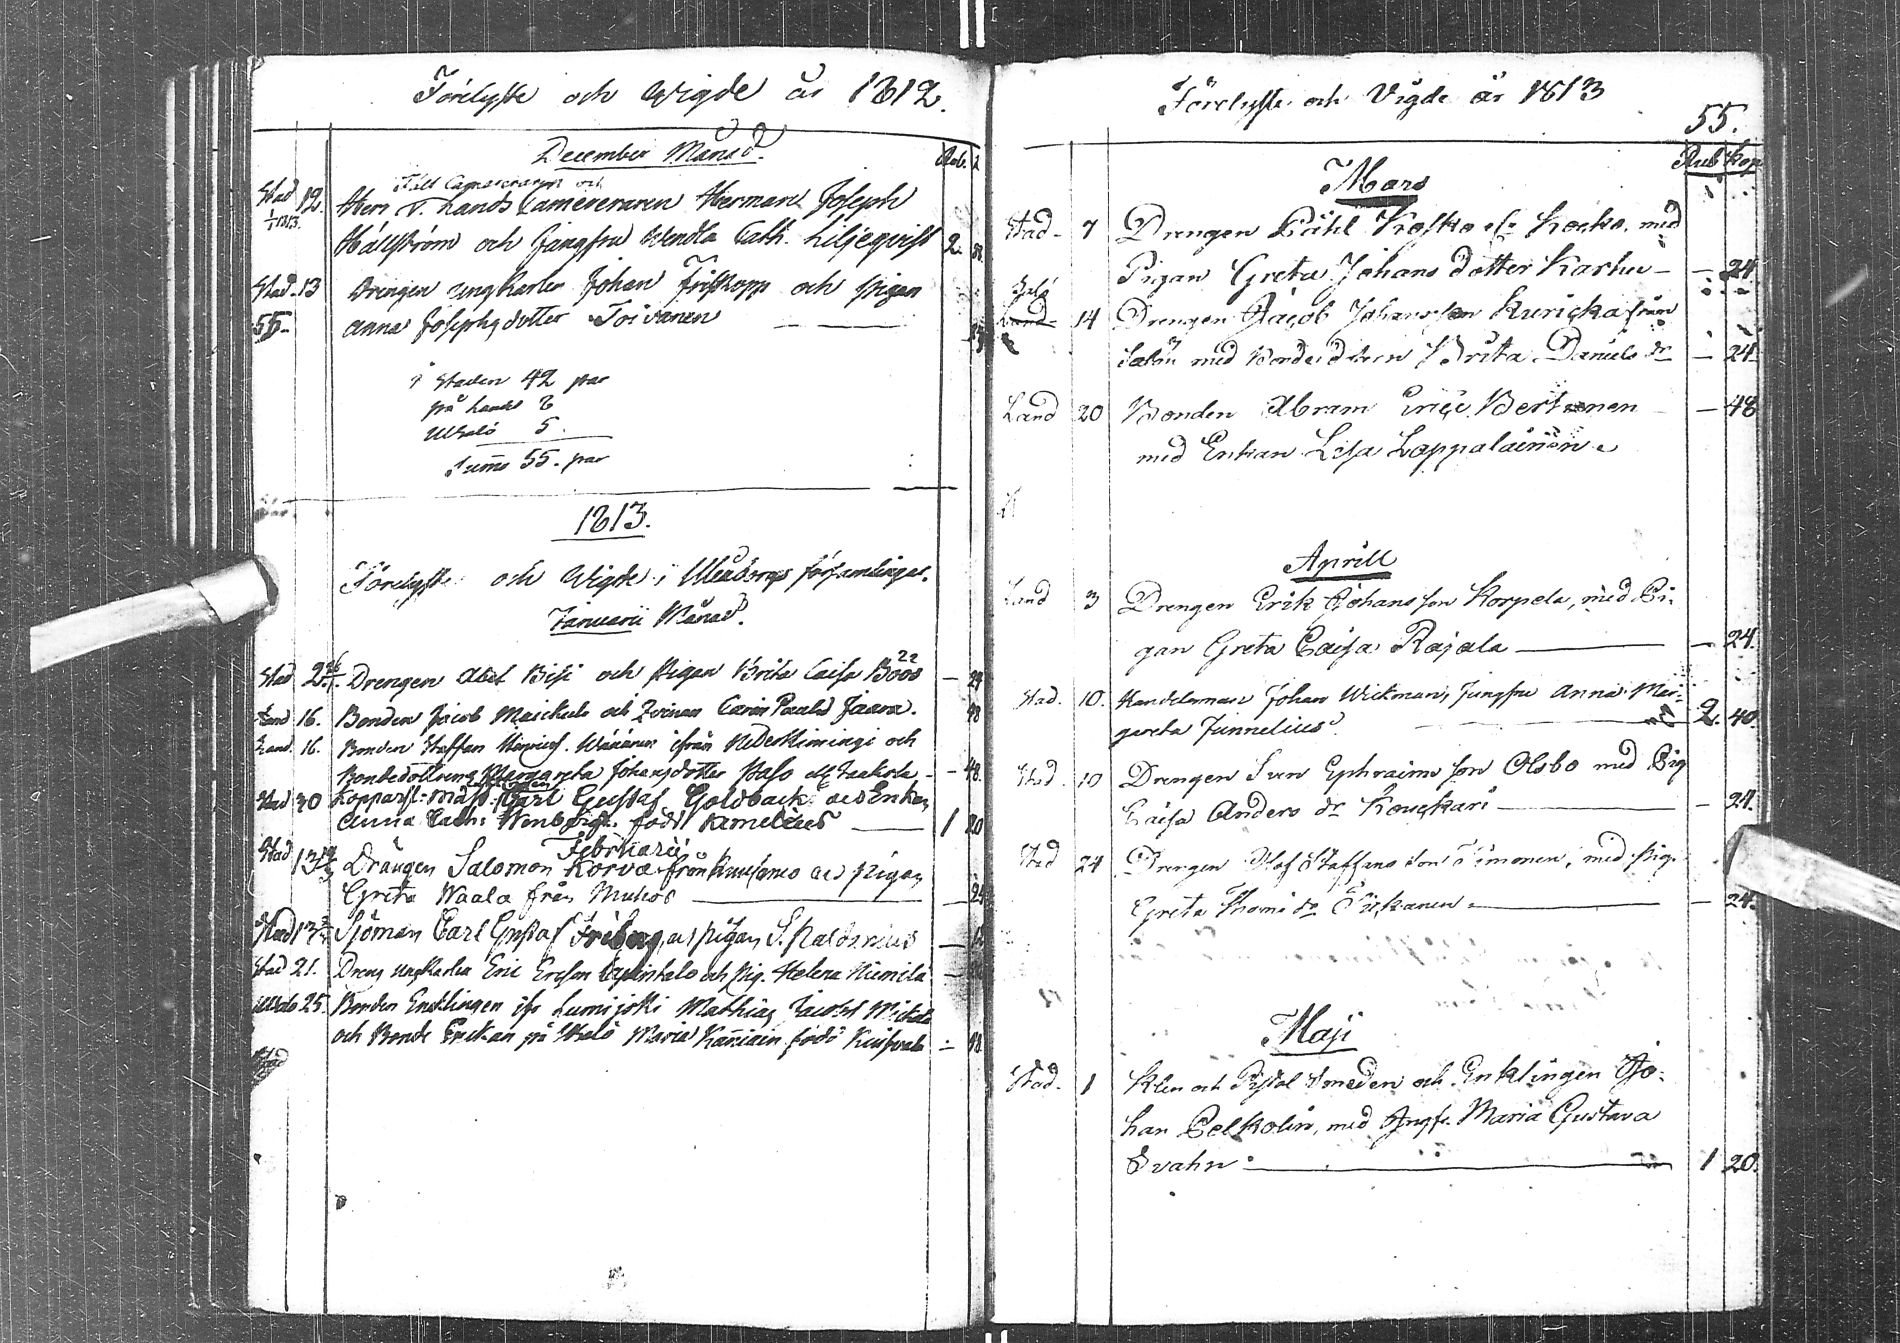 Förelyste och Wigde år 1812.
December Månad.
Rub.
Stad 12. Fält Camereraren och
Herr v. Lands Camereraren Herman Joseph
1813. Hällström och Jungfru Wendla Cath. Liljeqvist 2.
Stad 13 Drengen ungkarlen Johan Friskopp och pigan
55. Anna Josephsdotter Toivanen 24
i Staden 42 par
på Landet 8
Uhleö 5.
Summa 55. par
1813.
Förelyste och Wigde i Uleåborgs församlingar.
Januarii Månad.
Stad 2 Drengen Abel Bisi och Pigan Brita Caisa Böös — 24
Land 16. Bonden Jacob Maickula och Qvinan Carin Paulsd Jaara. 48
Land. 16. Bonden Staffan Hinricss. Wänänen ifrån Neder Kimingi och
Bondedottren Margareta Johansdotter Palo — 48.
Stad 30 Carl Gustaf Goldback och Enkan
Anna Cath: född — 1 20
Februarii
Stad 13 Drängen Salomon Korva från Kuusamo och Pigan
Greta Waala från Muhos — 24
Stad 13 Sjöman Carl Gustaf Friberg, och pigan S. Paldanius —
Stad 21. Dreng ungkarlen Eric Ersson och Pig. Helena Niemilä —
25. Bonden Enklingen ifr Lumijoki Mathias Jacobss Mickola
och Bonde Enkan på Uhleö Maria född — 48.
Stad
Förelyste och Vigde år 1813
55.
Rub Kop
Mars
Stad - 7 Drengen Påhl Kosko el. Kocko, med
Pigan Greta Johans dotter Karhu — — 24
Land 14 Drengen Jacob Johansson Kuricka från
Salön med Bonde dttren Brita Daniels dr — 24
Land 20 Bonden Abram Eric Bertunen — 48
med Enkan Lisa Lappalainen.
Aprill
Land 3 Drengen Erik Johansson Korpela, med Pi-
gan Greta Caisa Rajala — — 24.
Stad. 10. Handelsman Johan Wickman, Jungfru Anna Mar-
gareta Junnelius 2. 40.
Stad. 10 Drengen Sven Ephraims son Olsbo med Pig
Caisa Anders dr Kouckari — — 24.
Stad 24 Drengen Olof Staffans Son Timonen, med Pig.
Greta Thoms dr Tickanen — — 24.
Maji
Stad. 1 Klen och Pistol Smeden och Enklingen Jo-
han Pelkolin, med Jungfr. Maria Gustava
Svahn — 1 20.